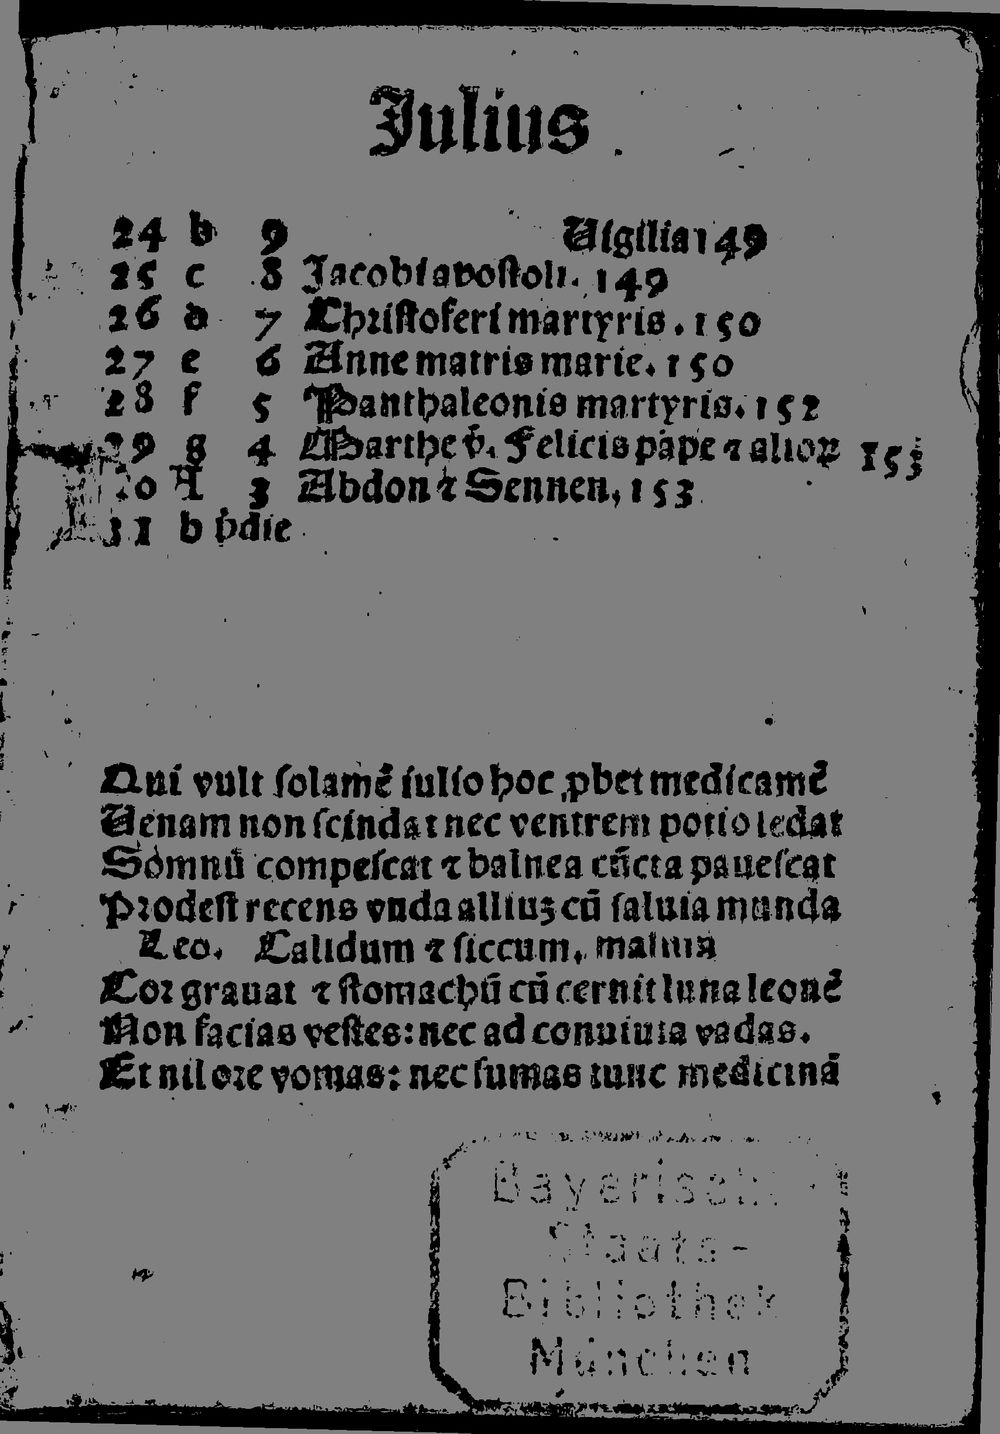 Julius
24 b 9 Uigilia 149
25 c 8 Jacobi apostoli. 149
26 d 7 Christoferi martyris. 150
27 e 6 Anne matris marie. 150
28 f 5 Panthaleonis martyris. 152
29 g 4 Marthe v̄. Felicis pape ⁊ alioꝝ 153
30 A 3 Abdon ⁊ Sennen. 153
31 b p̄die
Qui vult ſolamē iulio hoc ꝓbet medicamē
Uenam non ſcindat nec ventrem potio ledat
Somnū compeſcat ⁊ balnea cūcta paueſcat
Prodeſt recens vnda alliuꝫ cū ſaluia munda
Leo. Calidum ⁊ ſiccum. malum
Cor grauat ⁊ ſtomachū cū cernit luna leonē
Non facias veſtes: nec ad conuiuia vadas.
Et nil ore vomas: nec ſumas tunc medicinā
Bayerische
Staats-
Bibliothek
München